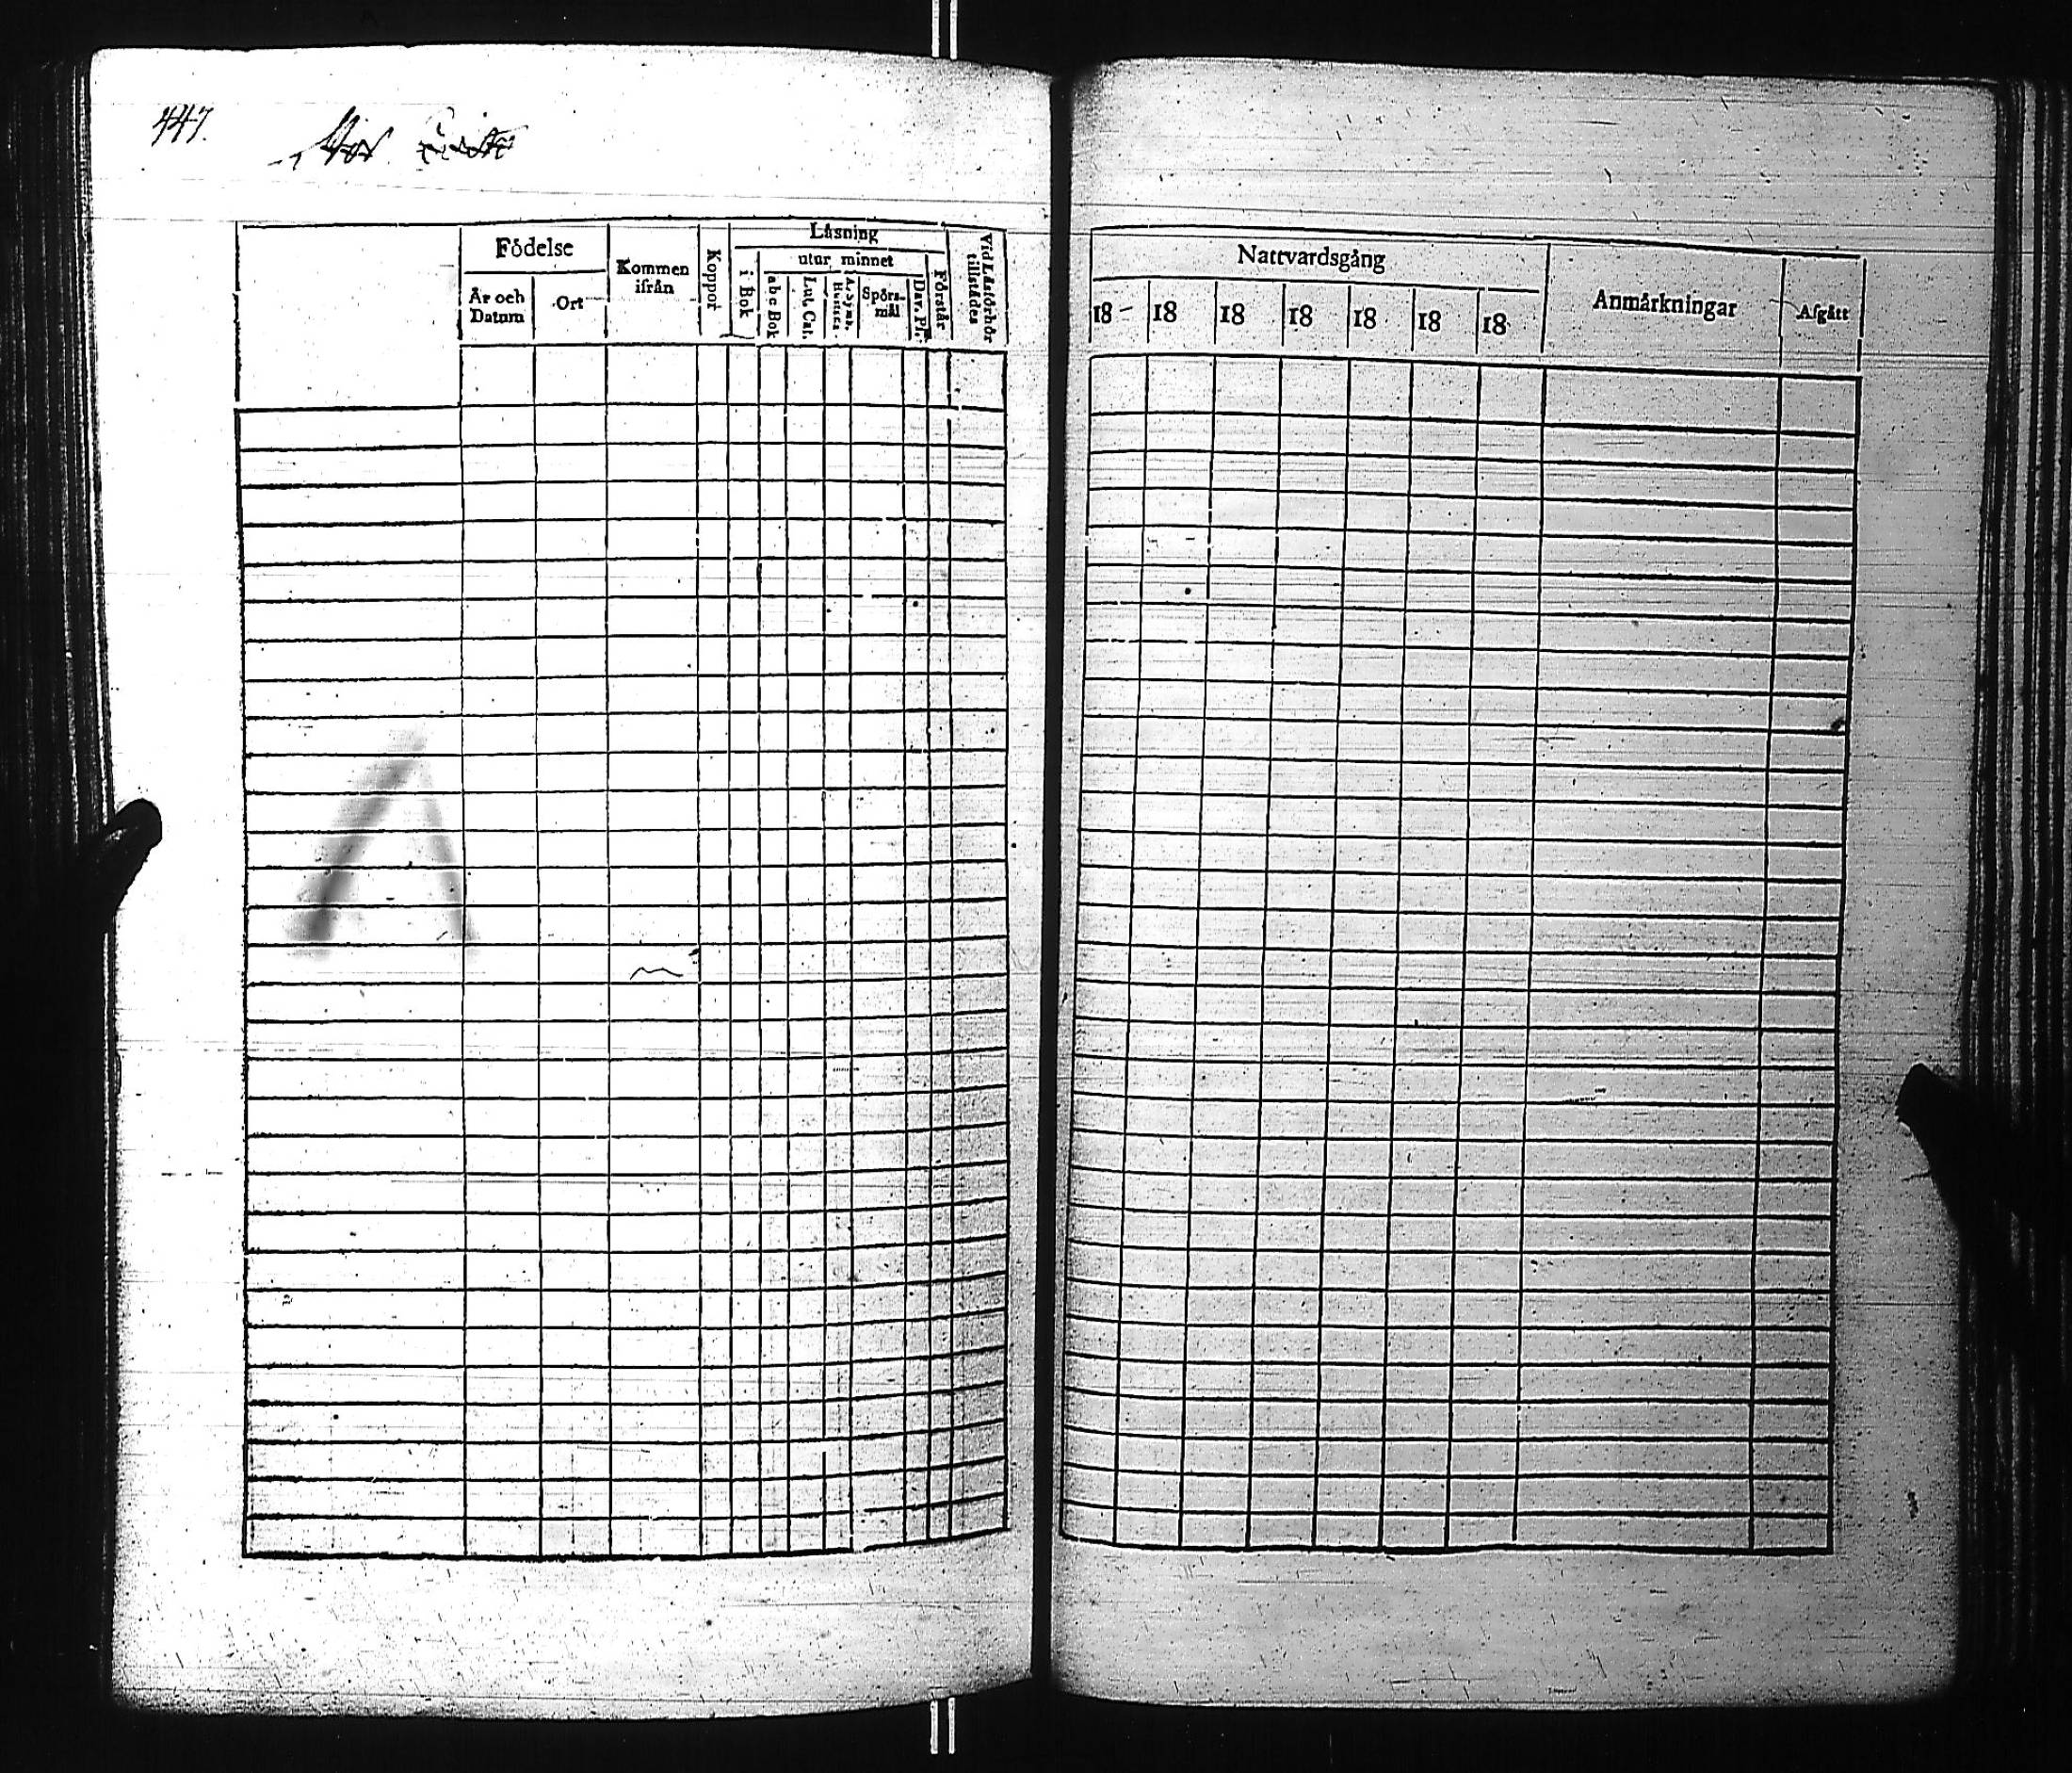 447.
Födelse
År och Datum
Ort
Kommen ifrån
Koppor
Läsning
i Bok
utur minnet
abc Bok
Lut. Cat.
Spörs-mål
Dav. Ps.
Förstår
Vid Läsförhör tillstädes
Nattvardsgång
18 18 18 18 18 18 18
Anmärkningar
Afgått